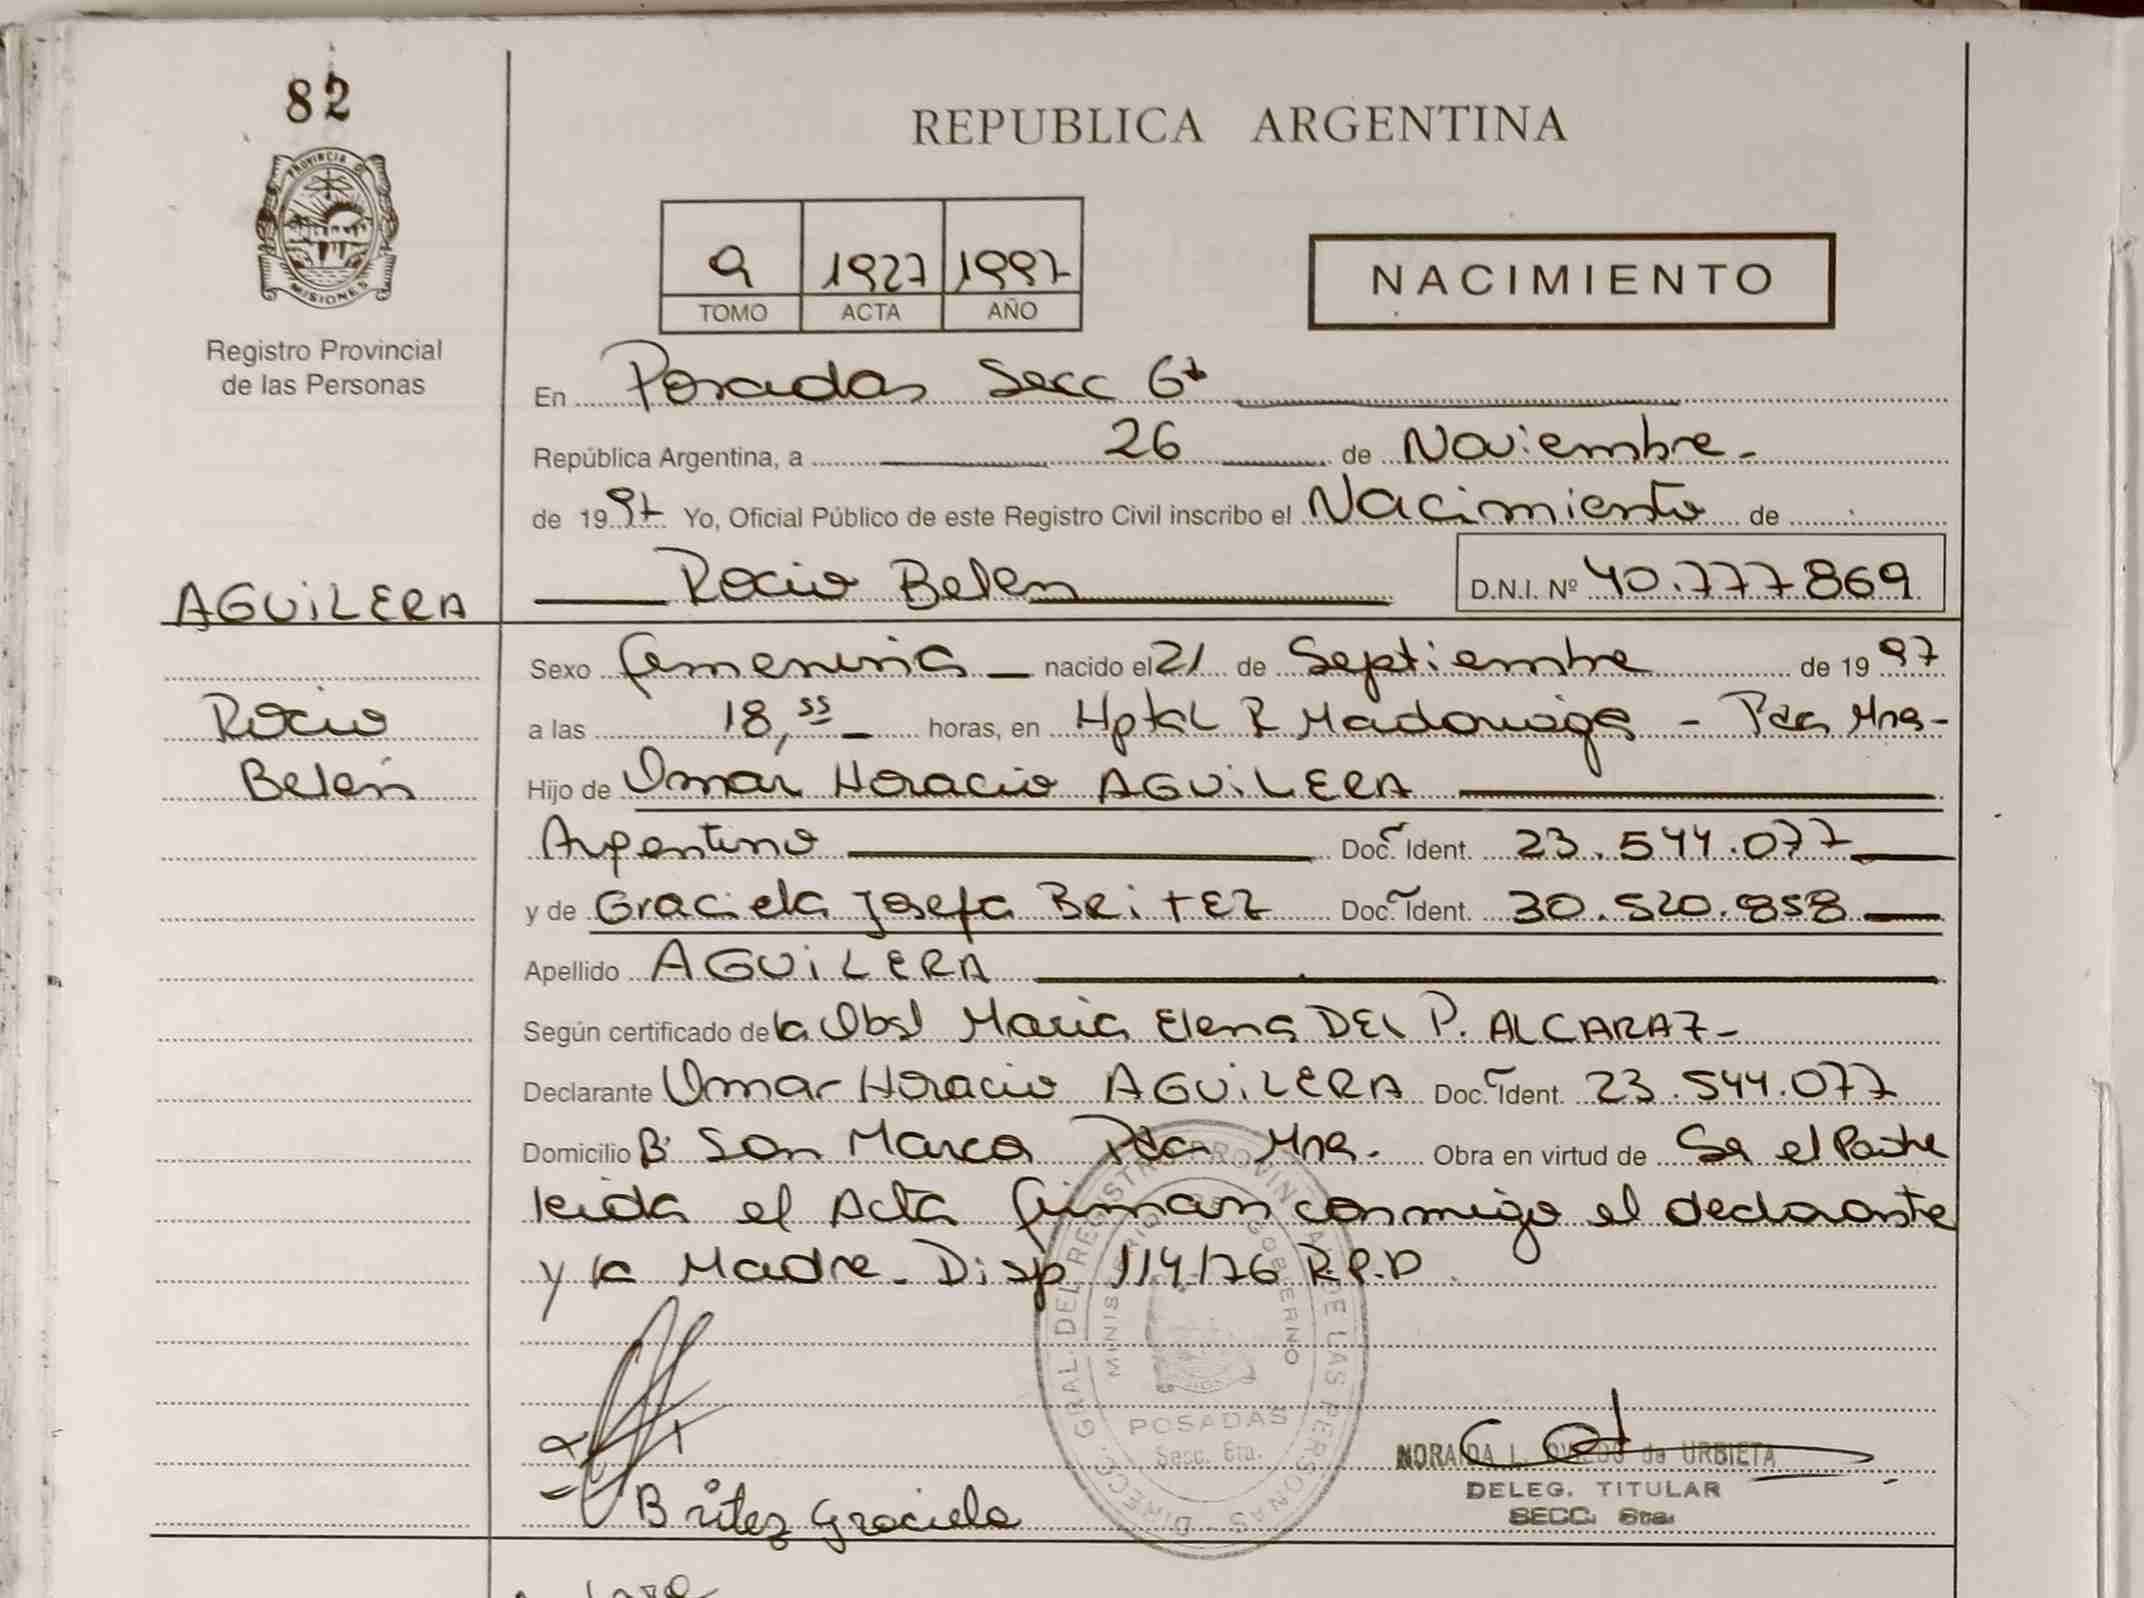 82
PROVINCIA DE
MISIONES
Registro Provincial
de las Personas
REPUBLICA ARGENTINA
9 1927 1997
TOMO ACTA AÑO
NACIMIENTO
En Posadas Secc 6ta
República Argentina, a 26 de Noviembre.
de 1997 Yo, Oficial Público de este Registro Civil inscribo el Nacimiento de
Rocio Belen D.N.I. Nº 40.777869
AGUiLERA
Rocio
Belén
Sexo femenina nacido el 21 de Septiembre de 1997
a las 18,55 horas, en Hptal R Madariaga - Pdas Mnes-
Hijo de Omar Horacio AGUiLERA
Argentino Doc. Ident. 23.544.077
y de Graciela Josefa BRiTEZ Doc. Ident. 30.520.858
Apellido AGUiLERA
Según certificado de la Obst Maria Elena DEL P. ALCARAZ-
Declarante Omar Horacio AGUiLERA Doc. Ident. 23.544.077
Domicilio Bº San Marcos Pdas Mnes. Obra en virtud de Ser el Padre
leida el Acta firman conmigo el declarante
y la Madre. Disp 114/76 R.P.P
DIREC. GRAL. DEL REGISTRO PROVINCIAL DE LAS PERSONAS
MINISTERIO DE GOBIERNO
POSADAS
Secc. 6ta.
Britez Graciela
L. OVIEDO de URBIETA
DELEG. TITULAR
SECC. 6ta.